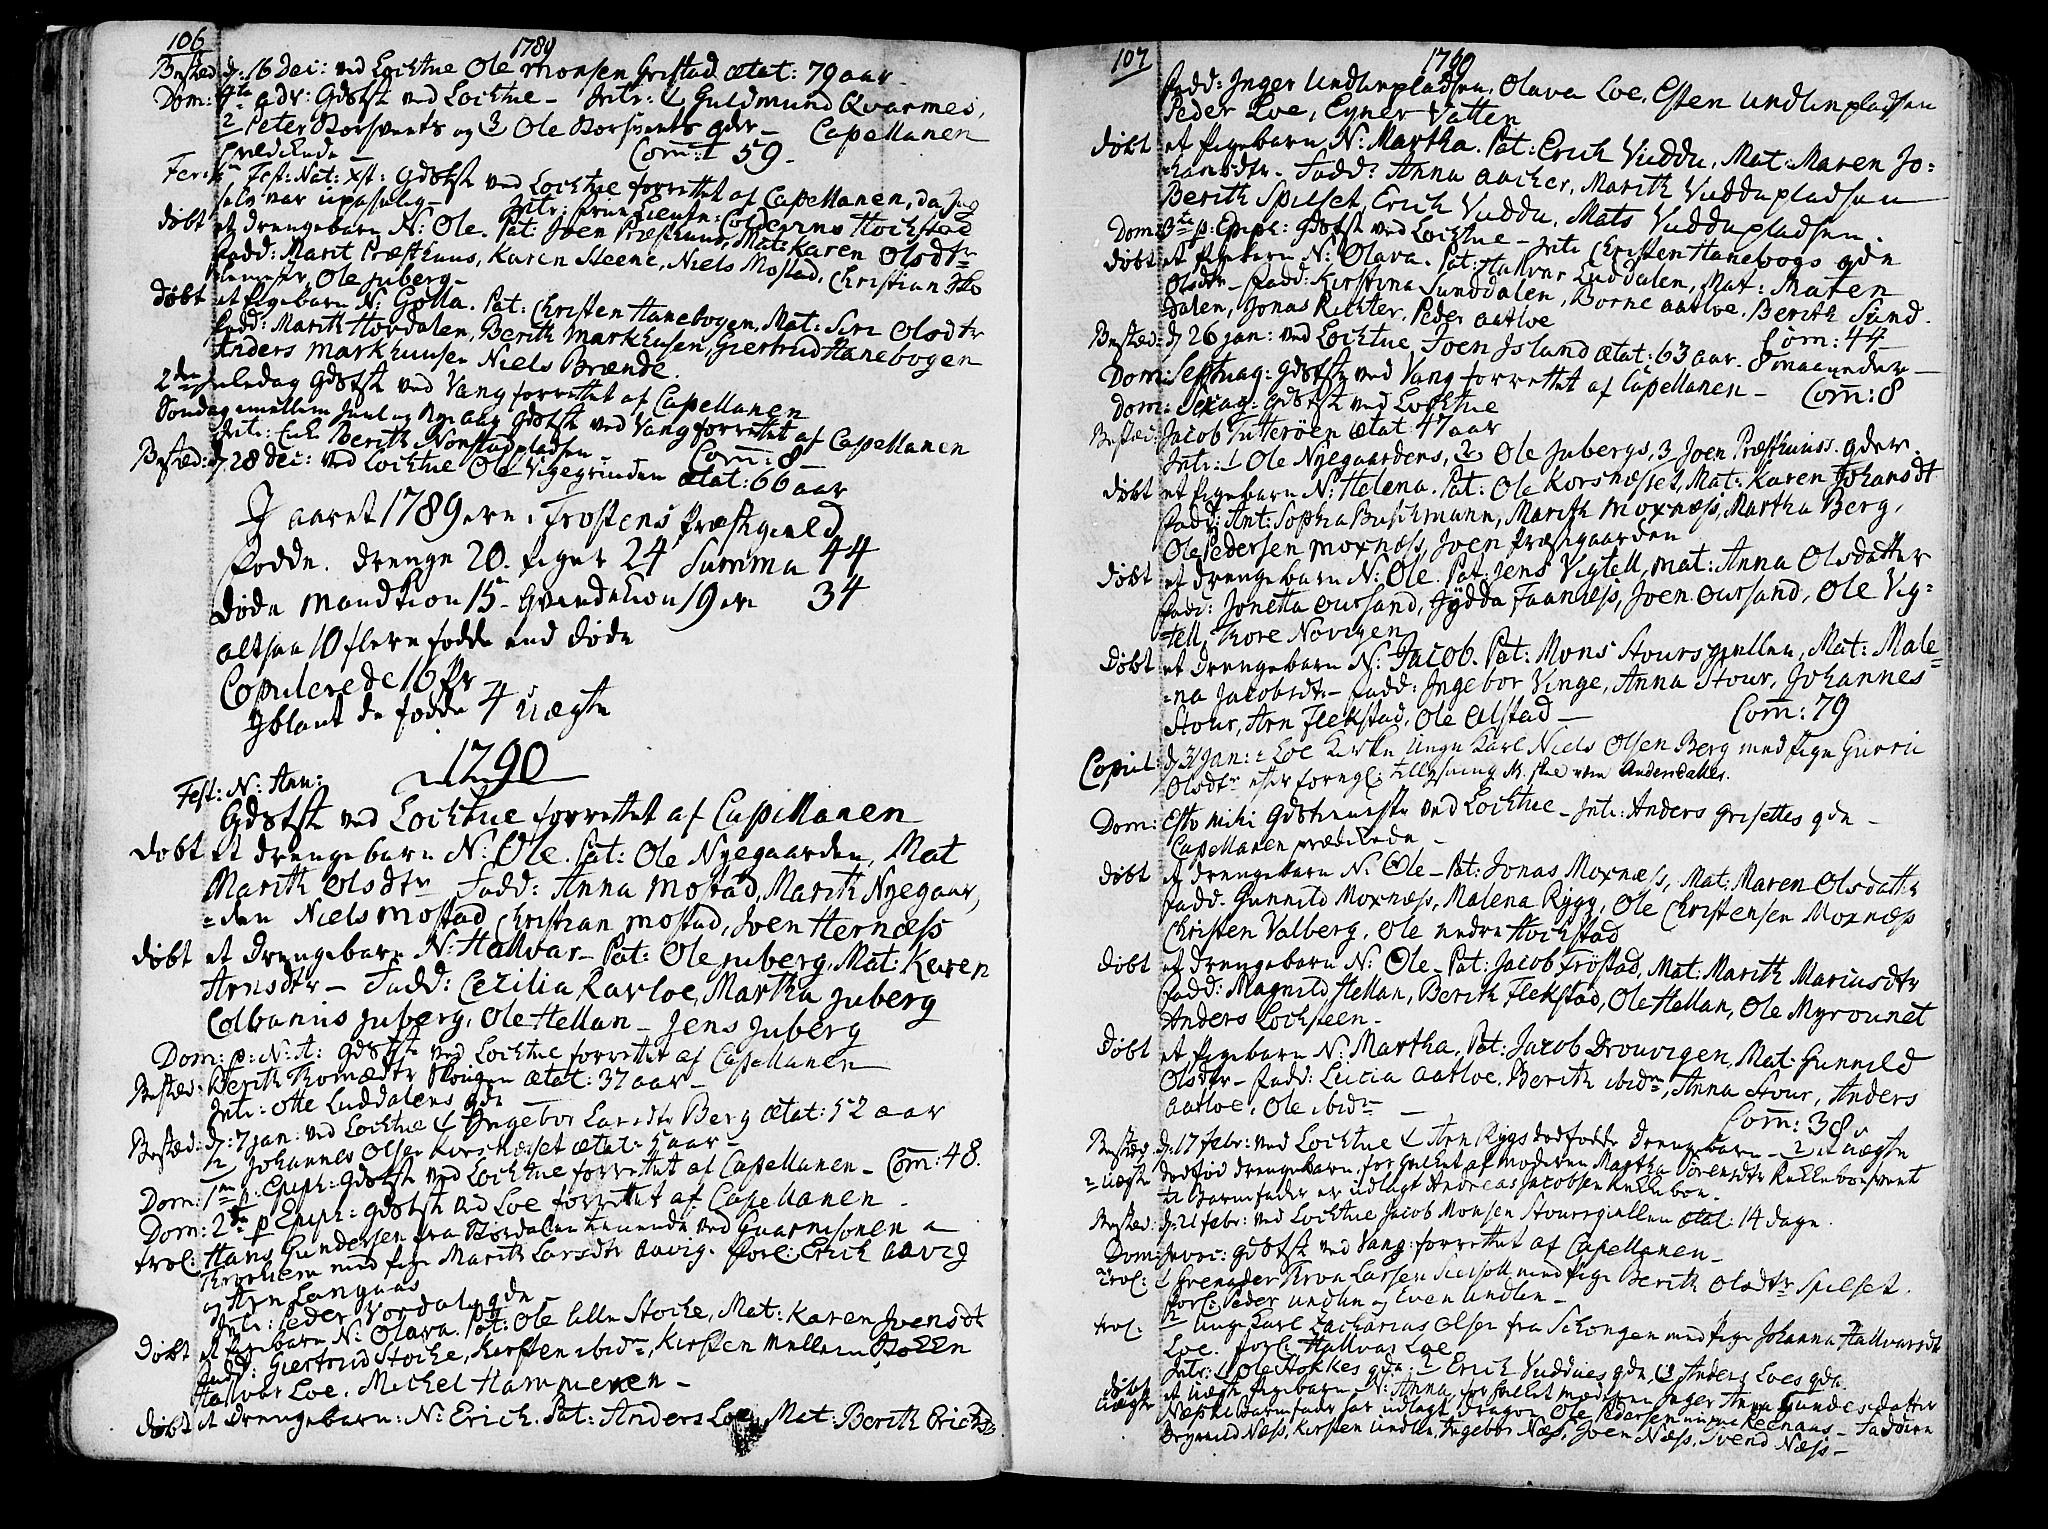 106
1789
Bested d: 16 Dec: ved Lochtue Ole Monsen Gristad ætat: 79 aar
Dom: 4ta adv: Gdstste ved Lochtue - Intr: 1 Guldmund Qvarmes,
2 Peter Korsvents og 3 Ole Korsvents qder - Capellanen
prædikede - Com: 59 -
Fer: Fest: Nat: Xst: Gdstste ved Lochtue forrettet af Capellanen, da jeg
selv var upasselig -
døbt et drengebarn N: Ole. Pat: Joen Præsthuus, Mat: Karen Olsdtr
Fadd: Marit Præsthuus, Karen Steene, Niels Mostad, Christian
Ole Juberg -
døbt et Pigebarn N: Golla. Pat: Christen Hanebogen, Mat: Siri Olsdtr
Fadd: Marith Hordalen, Berith Markhusen, Giertrud Hanebogen
Anders Markhuusen Niels Brænde.
2den Juledag Gdstste ved Vang forrettet af Capellanen
Søndag imellem Juul og Nyaar Gdstste ved Vang forrettet af Capellanen
Intr: Berith Norstadpladsen - Com: 8 -
Bested: d 28 Dec: ved Lochtue Ole Vigegrinden ætat: 66 aar
I aaret 1789 ere i Frostens Præstegield
Fødde. drenge 20. Piger 24 Summa 44
døde Mandkion 15 - Qvindekion 19 er 34
altsaa 10 flere fødde end døde
Copulerede 16 Pr
Iblant de fødde 4 uægte
1790
Fest: N: Ann:
Gdstst ved Lochtue forrettet af Capellanen
døbt et drengebarn N: Ole. Pat: Ole Nyegaarden, Mat
Marith Olsdtr Fadd: Anna Mostad, Marith Nyegaar,
=den Niels Mostad Christian Mostad, Joen Hernæss
døbt et drengebarn N: Hallvar - Pat: Ole Juberg, Mat: Karen
Arnsdtr - Fadd: Cecilia Ravloe, Martha Juberg
Colbanus Juberg, Ole Hellan - Jens Juberg
Dom: p: N: A: Gdstste ved Lochtue forrettet af Capellanen
Bested: Berith Thomædtr Skougen ætat: 37 aar -
Intr: Otte Luddalens qde -
Bested: d: 7 Jan: ved Lochtue 1 Ingebor Larsdtr Berg ætat: 52 aar
2 Johannes Olsen Korsnæset ætat: 5 aar -
Dom: 1m p: Epiph: Gdstste ved Lochtue forrettet af Capellanen - Com: 48.
Dom: 2da p Epiph: Gdstste ved Loe forrettet af Capellanen -
trol: Hans Gundersen fra Størdalen tienende ved Guarnisonen i
Tronhiem med Pige Marith Larsdtr Aavig. forl: Erich Aavig
og Arn Langaas
Intr: Peder Vordals qde -
døbt et Pigebarn N: Olava. Pat: Ole lille Stocke, Mat: Karen Ivensdt
Fadd: Giertrud Stocke, Kirsten ibidm, Kirsten Mellem
Hallvar Loe, Michel Hammeren -
døbt et Drengebarn: N: Erich. Pat: Anders Loe, Mat: Berith Erichdt
107
1790
Fadd: Inger Undlinpladsen, Olava Loe, Esten Undlinpladsen
Peder Loe, Eyner Vatten
døbt et Pigebarn N: Martha. Pat: Erich Vuddu, Mat: Maren Jo=
=hansdtr - Fadd: Anna Aacker, Marith Vuddupladsen
Berith Spilset, Erich Vuddu, Mats Vuddupladsen.
Dom: 3tia p: Epiph: Gdstst ved Lochtue - Intr: Christen Hanebogs qde
døbt et Pigebarn N: Olava. Pat: Hallvar Luddalen, Mat: Maren
Olsdtr - Fadd: Kirstina Sunddalen, Borne Aatloe, Berith Sund.
dalen, Jonas Richter, Peder Aatloe Com: 44
Bested: d 26 Jan: ved Lochtue Joen Island ætat: 63 aar. 8 maaneder -
Dom: Septuag: Gdstste ved Vang forrettet af Capellanen - Com: 8
Dom: Sexag: Gdstste ved Lochtue
Bested: Jacob Tutterøen ætat: 47 aar
Intr: 1 Ole Nyegaardens, 2 Ole Jubergs, 3 Joen Præsthuuss. qder.
døbt et Pigebarn N: Helena. Pat: Ole Korsnæsset, Mat: Karen Johansdt
Fadd: Ant: Sophia Buschmann, Marith Moxnæss, Martha Berg,
Ole Pedersen Moxnæss, Joen Præstgaarden
døbt et drengebarn N: Ole. Pat: Jens Vigtell, Mat: Anna Olsdatter
Fadd: Jonetta Oursand, Jødda Faanæss, Joen Oursand, Ole Vig=
=tell, Thore Novigen
døbt et drengebarn N: Jacob. Pat: Mons Stoursgiellen, Mat: Male=
=na Jacobsdtr - Fadd: Ingebor Vinge, Anna Stour, Johannes
Stour, Arn Flekstad, Ole Alstad - Com: 79
Copul: d 31 Jan: i Loe Kirke Unge Karl Niels Olsen Berg med Pige Gurri
Olsdtr efter foregl: Tillysning
Dom: Esto mihi Gdstenneste ved Lochtue - Intr: Anders Grisettes qde -
Capellanen prædikede -
døbt et drengebarn N: Ole - Pat: Jonas Moxnæss, Mat: Maren Olsdattr
Fadd. Gunnild Moxnæss, Malena Rygg, Ole Christensen Moxnæss
Christen Valberg, Ole nedre Hochstad
døbt et drengebarn N: Ole - Pat: Jacob Frøstad, Mat: Marith Mariusdtr
Fadd: Magnild Hellan, Berith Flekstad, Ole Hellan, Ole Myrounet
Anders Lochsteen -
døbt et Pigebarn N: Martha. Pat: Jacob Drouvigen, Mat: Gunnild
Olsdtr - Fadd: Lucia Aatloe, Berith ibidm, Anna Stour, Anders
Aatloe, Ole ibidm - Com: 38
Bested d: 17 Febr: ved Lochtue 1 Arn Ryggs dødfødde drengebarn - 2 et uægte
=uægte dødfød drengebarn, for hvilket af moderen Martha Sørensdtr
til Barnefader er udlagt Andreas Jacobsen
Bested: d: 21 Febr: ved Lochtue Jacob Monsen Stoursgiellen ætat: 14 dage.
Dom: Invoc: Gdstst ved Vang: forrettet af Capellanen -
trol: 1 Grenader Thron Larsen med Pige Berith Olsdtr Spilset.
Forl: Peder Undlin og Even Undlin -
trol. 2 Unge Karl Zacharias Olsen fra Schongen med Pige Johanna Hallvarsdt
Loe. forl: Hallvar Loe
Intr: 1 Ole Stokkes qde. 2 Erich Vuddues qde, 3 Anders Loes qde.
døbt et uægte Pigebarn N: Anna, for hvilket moderen Inger Anna Gundersdatter
uægte Næss til Barnefader har udlagt Dragon Ole Pedersen - Faddere
Brynnild Næss, Kirsten Undlin, Ingebor Næss, Joen Næss, Svend Næss -